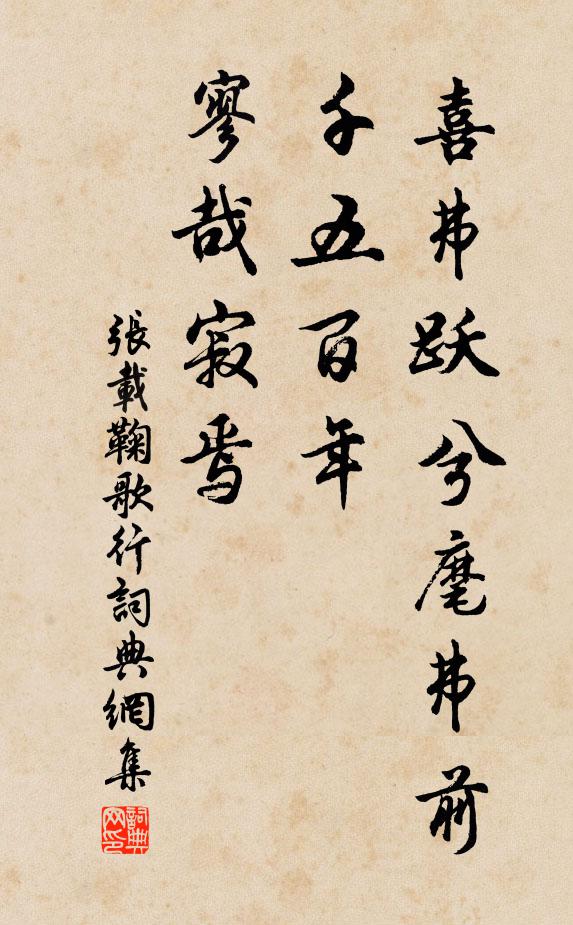 喜弗跃兮麾弗前
千五百年
寥哉寂焉
張載鞠歌行詞典網集
詞典
网印